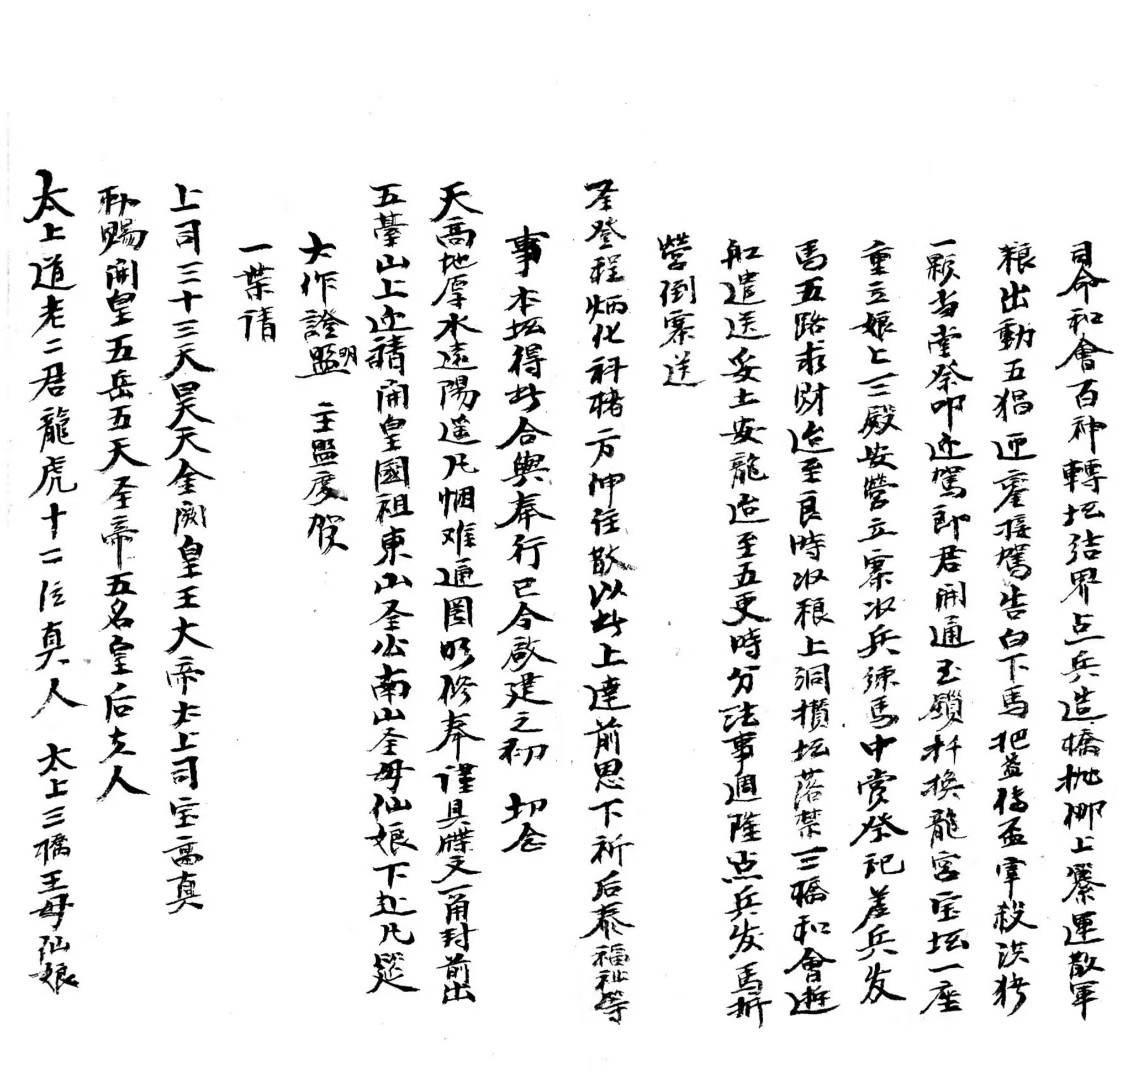 司命和會百神轉坛结界点兵造橋抛梆上熟運散軍
粮出動五猖迎霍接駕告白下馬把盏傳盃宰殺洪猪
一顆当堂祭叩迎駕郎君開通玉鎖扦换龍宮宝坛一座
重立娘上三殿安營立寨收兵练馬中赏祭祀差兵发
馬五路求财迨至良時收粮上洞攢坛落禁三橋和會遊
船遣送妥土安龍迨至五更時分法事週隆点兵发馬拆
營倒寨送
圣登程炳化科楮方伸住散以此上達前思下祈后泰福祉等
事本坛得此合與奉行已今啟建之初 切念
天高地厚水遠陽遥凡悃难通圈明修奉谨具牒文一角封前出
五臺山上迎請開皇國祖東山圣公南山圣母仙娘下赴凡筵
大作證盟明 主盟度贺
一葉请
上司三十三天昊天金阙皇王大帝太上司宝高真
补赐開皇五岳五天圣帝五名皇后夫人
太上道老二君龍虎十二位真人 太上三橋王母仙娘